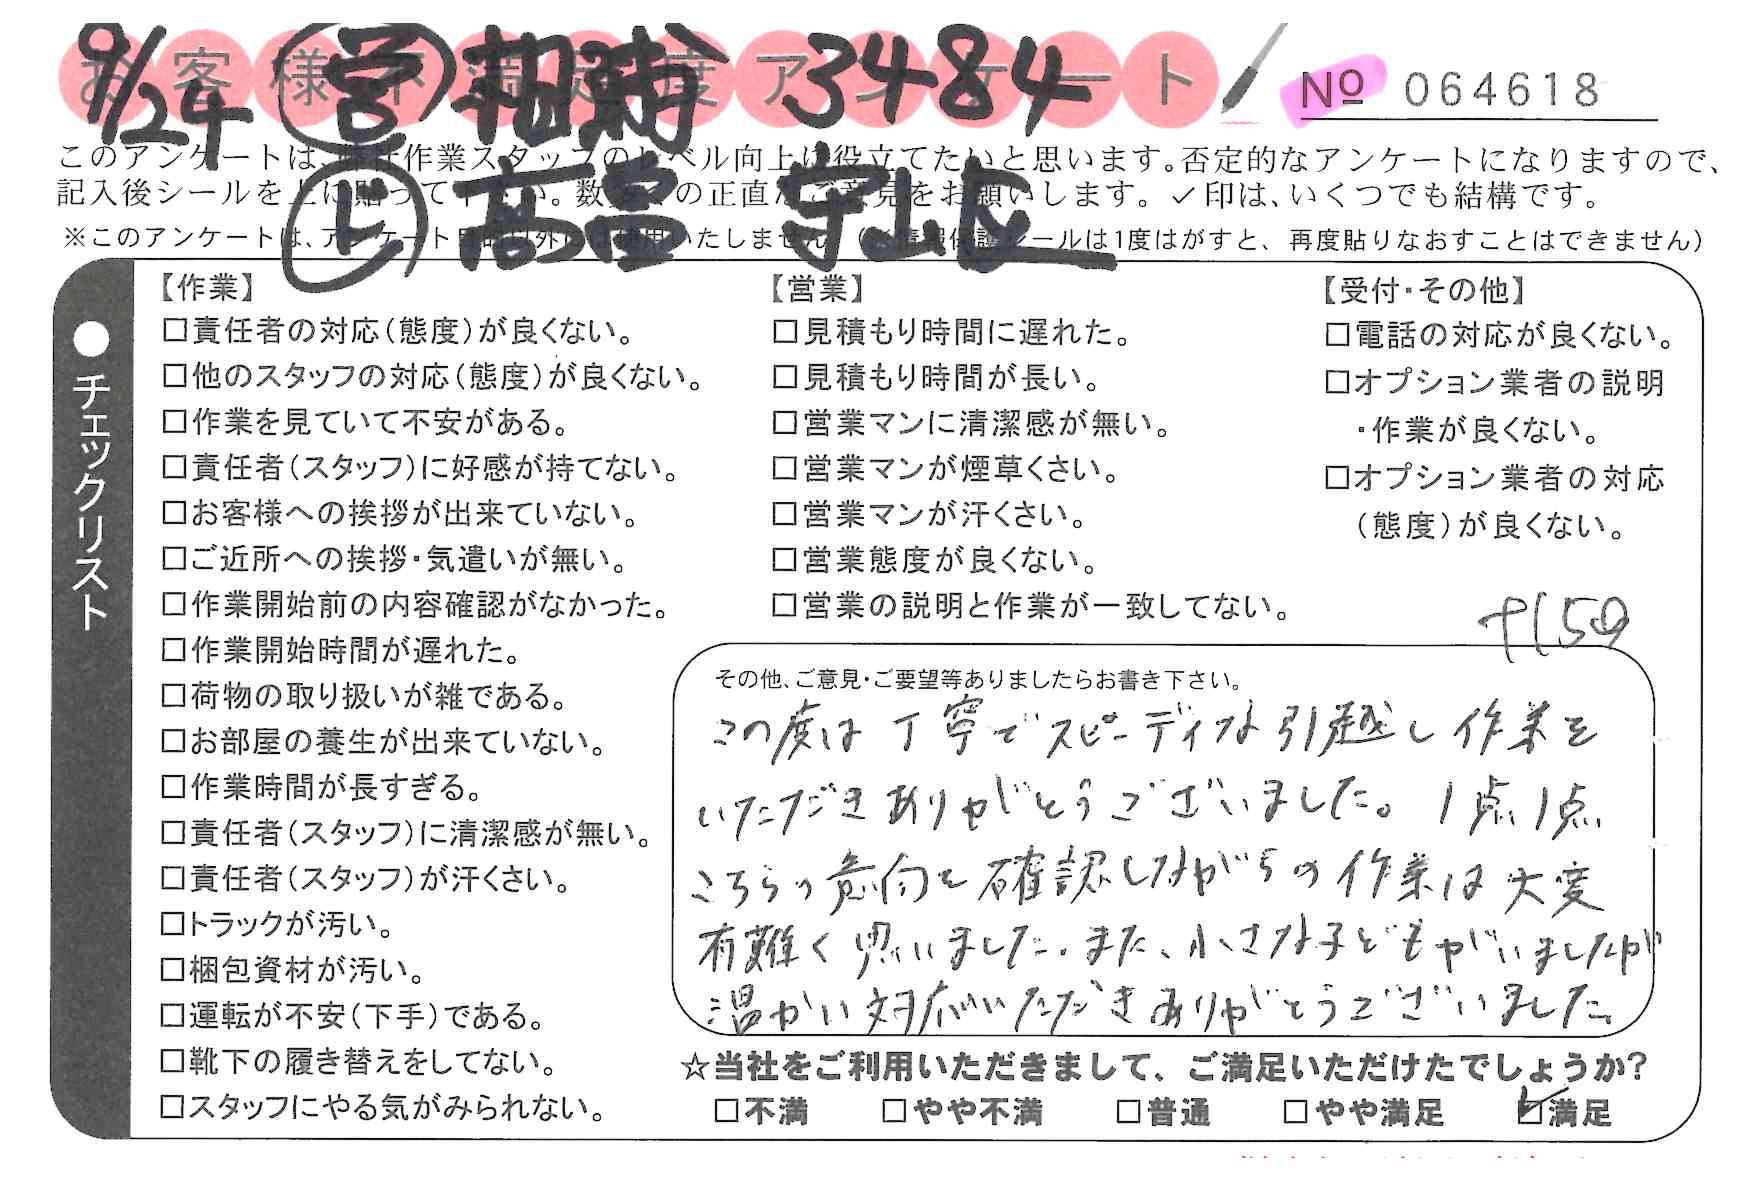 お客様不満足度アンケート
9/24 営 相武 3484
№ 064618
このアンケートは、弊社作業スタッフのレベル向上に役立てたいと思います。否定的なアンケートになりますので、
記入後シールを上に貼って下さい。数多くの正直なご意見をお願いします。✓印は、いくつでも結構です。
Ⓛ 守山
※このアンケートは、アンケート目的以外には使用いたしません。(※情報保護シールは1度はがすと、再度貼りなおすことはできません)
●チェックリスト
【作業】
□責任者の対応(態度)が良くない。
□他のスタッフの対応(態度)が良くない。
□作業を見ていて不安がある。
□責任者(スタッフ)に好感が持てない。
□お客様への挨拶が出来ていない。
□ご近所への挨拶・気遣いが無い。
□作業開始前の内容確認がなかった。
□作業開始時間が遅れた。
□荷物の取り扱いが雑である。
□お部屋の養生が出来ていない。
□作業時間が長すぎる。
□責任者(スタッフ)に清潔感が無い。
□責任者(スタッフ)が汗くさい。
□トラックが汚い。
□梱包資材が汚い。
□運転が不安(下手)である。
□靴下の履き替えをしてない。
□スタッフにやる気がみられない。
【営業】
□見積もり時間に遅れた。
□見積もり時間が長い。
□営業マンに清潔感が無い。
□営業マンが煙草くさい。
□営業マンが汗くさい。
□営業態度が良くない。
□営業の説明と作業が一致してない。
【受付・その他】
□電話の対応が良くない。
□オプション業者の説明
・作業が良くない。
□オプション業者の対応
(態度)が良くない。
その他、ご意見・ご要望等ありましたらお書き下さい。
この度は丁寧でスピーディな引越し作業を
いただきありがとうございました。1点1点
こちらの意向を確認しながらの作業は大変
有難く思いました。また、小さな子どもがいましたが
温かい対応いただきありがとうございました。
☆当社をご利用いただきまして、ご満足いただけたでしょうか?
□不満 □やや不満 □普通 □やや満足 ☑満足